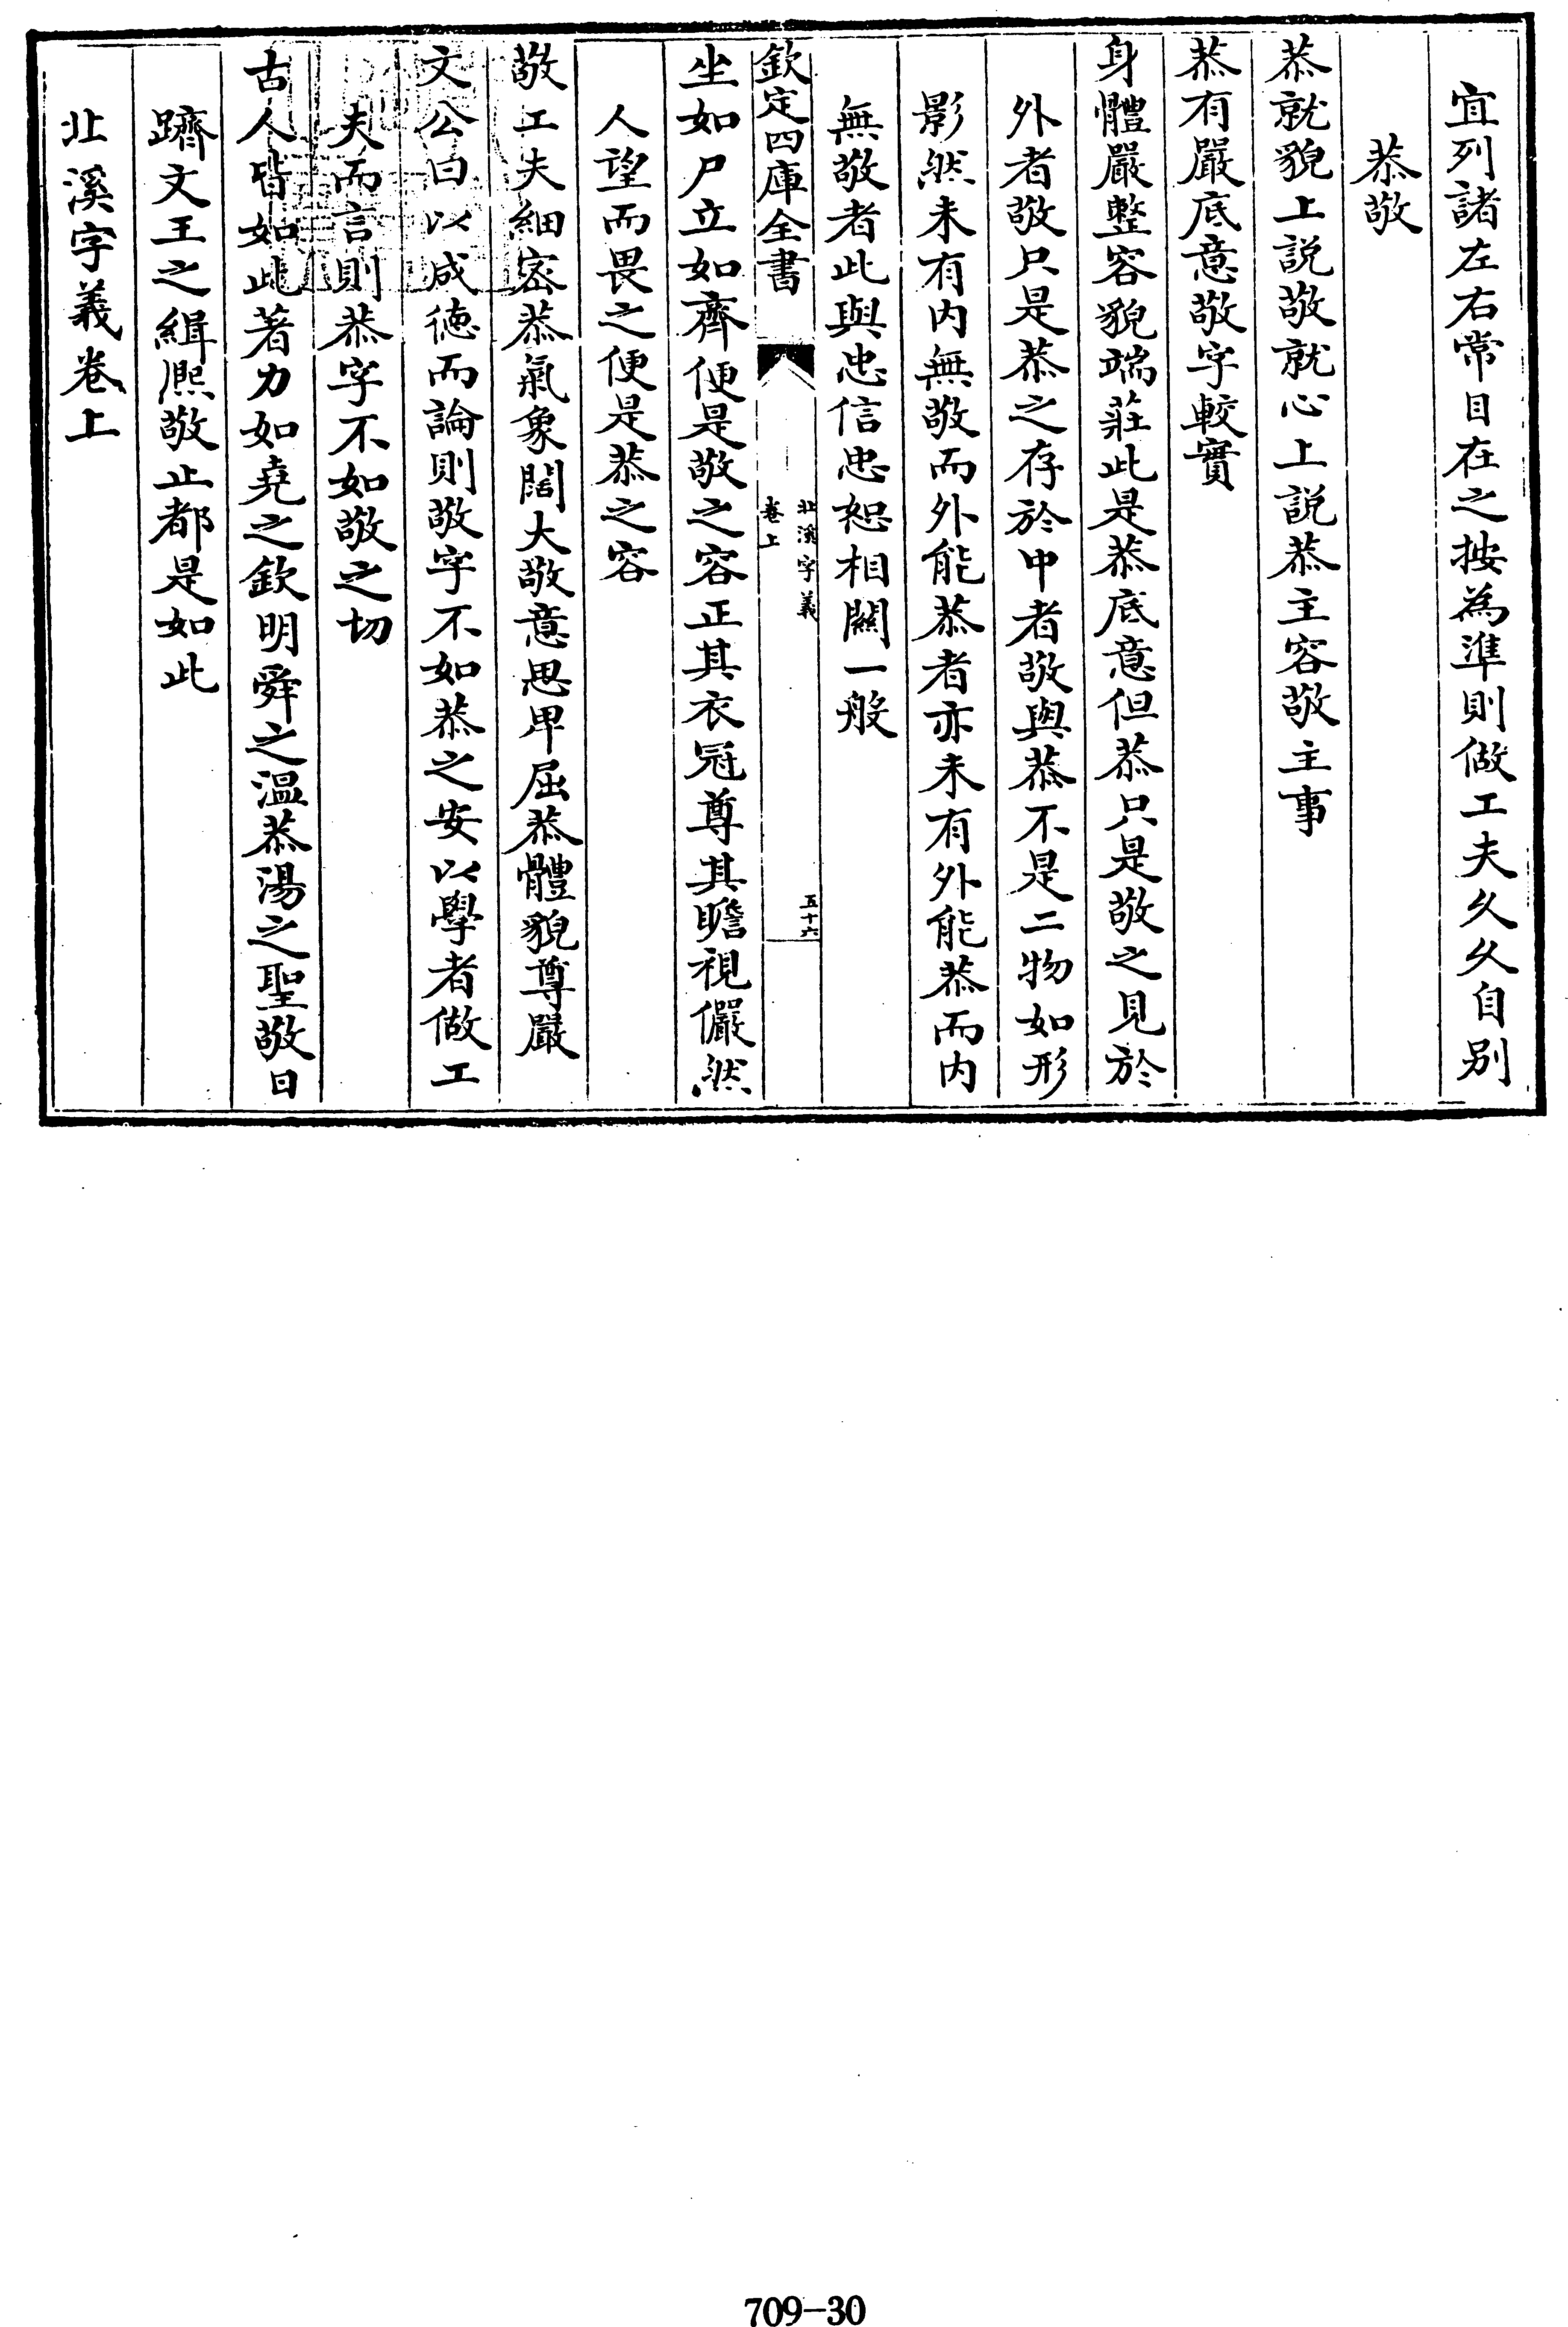 宜列諸左右常目在之按為準則做工夫久久自别
恭敬
恭就貌上説敬就心上説恭主容敬主事
恭有嚴底意敬字較實
身體嚴整容貌端莊此是恭底意但恭只是敬之見於
外者敬只是恭之存於中者敬與恭不是二物如形
影然未有内無敬而外能恭者亦未有外能恭而内
無敬者此與忠信忠恕相關一般
欽定四庫全書
北溪字義
卷上
五十六
坐如尸立如齊便是敬之容正其衣冠尊其瞻視儼然
人望而畏之便是恭之容
敬工夫細密恭氣象闊大敬意思卑屈恭體貌尊嚴
文公曰以成徳而論則敬字不如恭之安以學者做工
夫而言則恭字不如敬之切
古人皆如此著力如堯之欽明舜之温恭湯之聖敬日
躋文王之緝熈敬止都是如此
北溪字義卷上
709-30